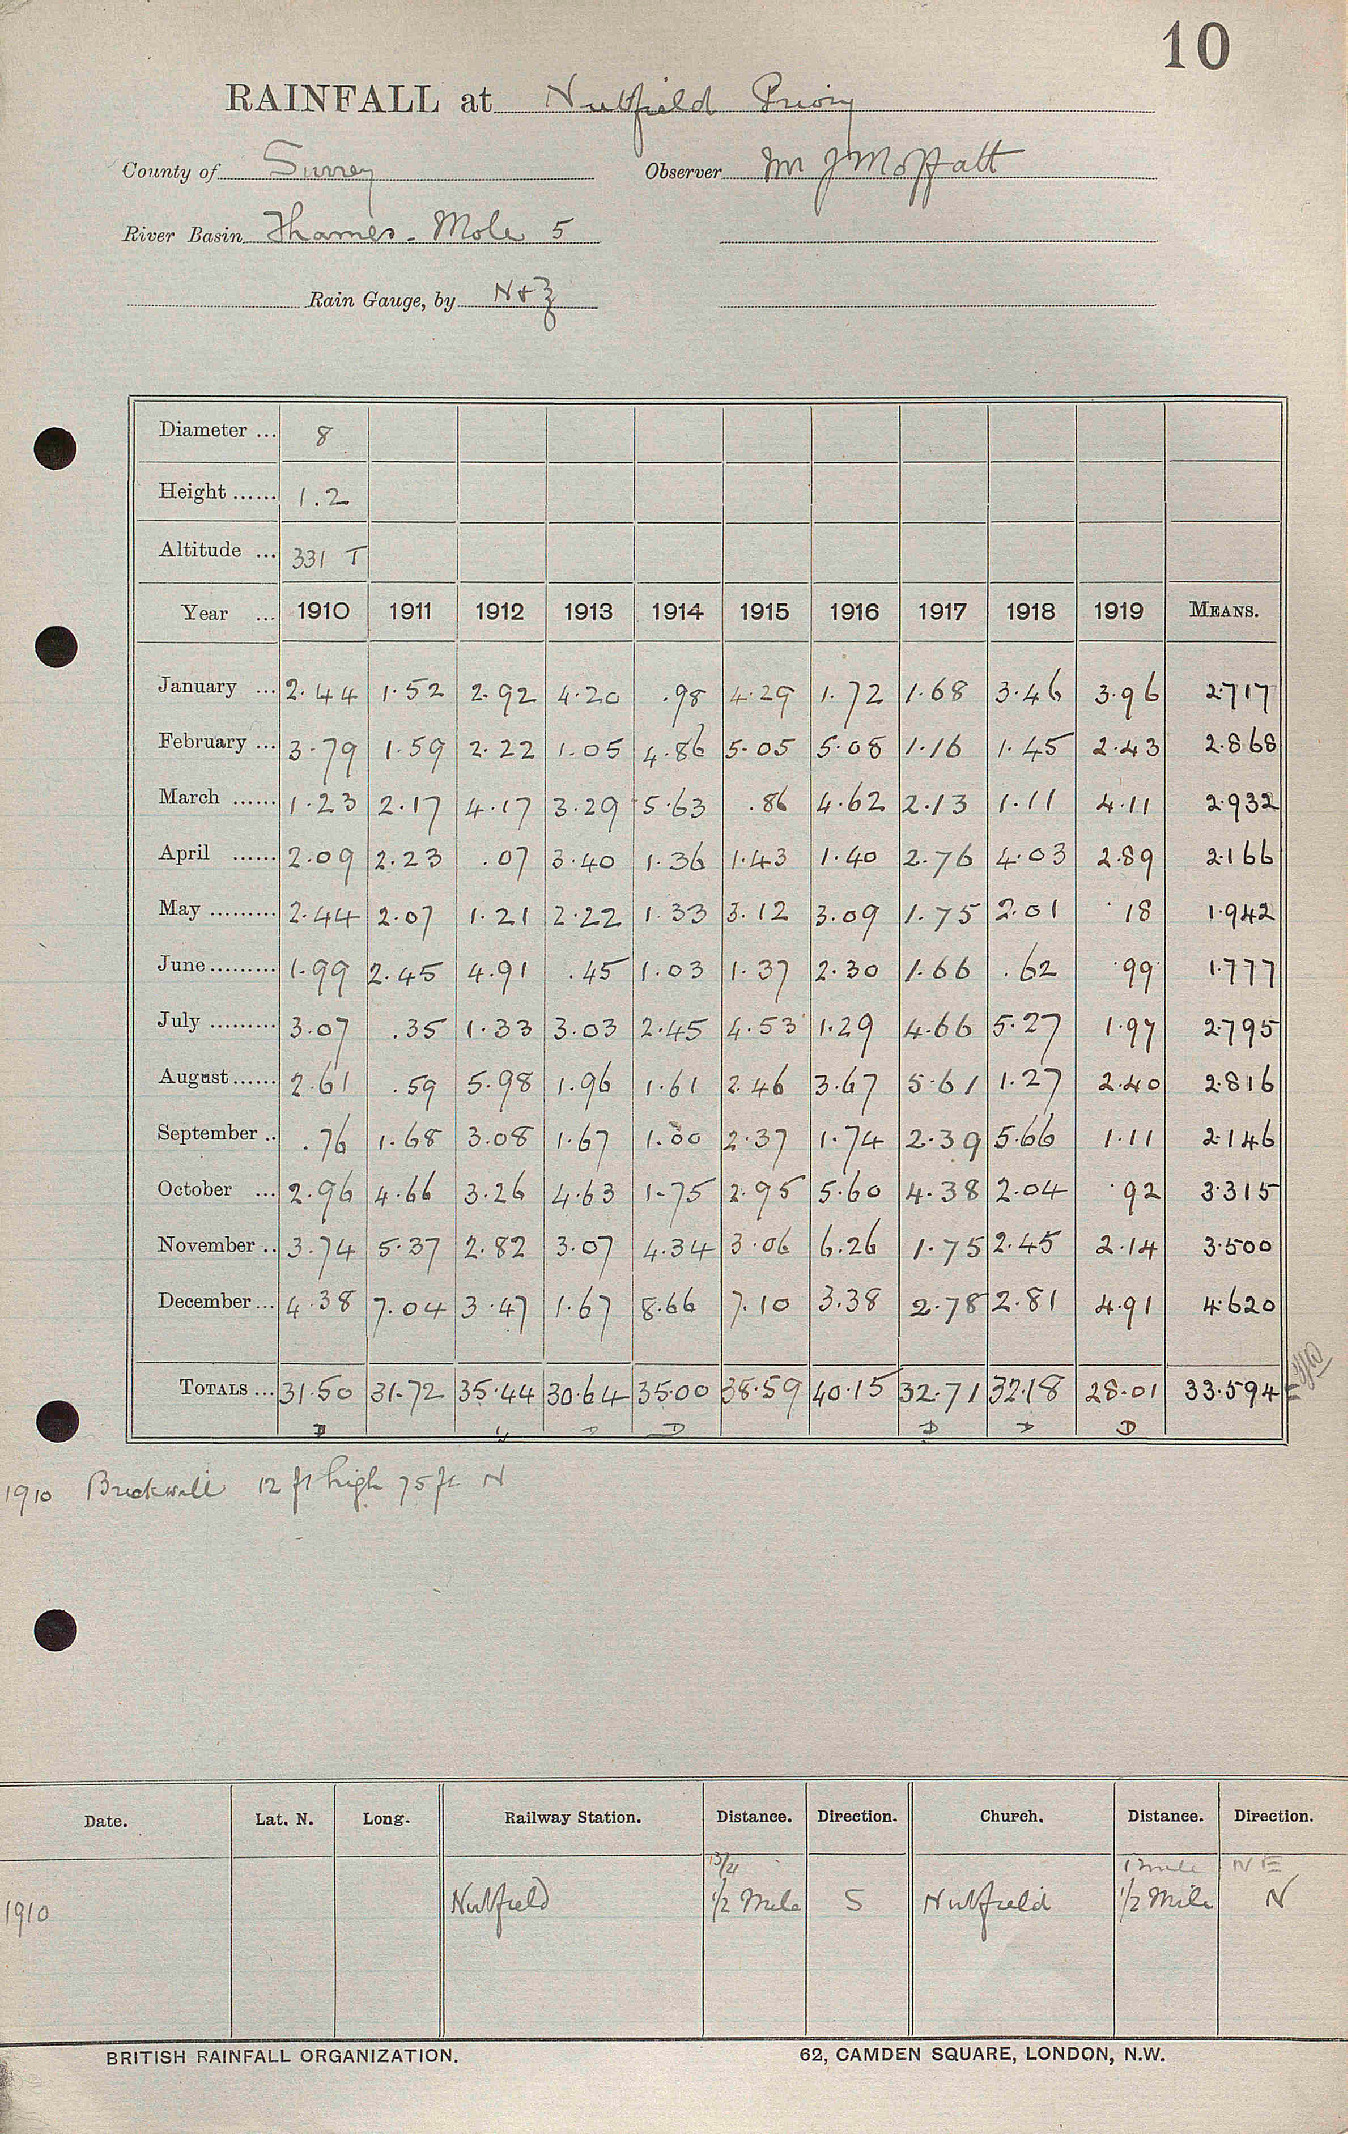 10
RAINFALL at Nutfield Priory
County of Surrey Observer Mr J Moffatt
River Basin Thames - Mole 5
Rain Gauge, by N & Z
Diameter ... 8
Height ...... 1.2
Altitude ... 331 T
Year ... 1910 1911 1912 1913 1914 1915 1916 1917 1918 1919 MEANS.
January ... 2.44 1.52 2.92 4.20 .98 4.29 1.72 1.68 3.46 3.96 2.717
February ... 3.79 1.59 2.22 1.05 4.86 5.05 5.08 1.16 1.45 2.43 2.868
March ...... 1.23 2.17 4.17 3.29 5.63 .86 4.62 2.13 1.11 4.11 2.932
April ...... 2.09 2.23 .07 3.40 1.36 1.43 1.40 2.76 4.03 2.89 2.166
May ......... 2.44 2.07 1.21 2.22 1.33 3.12 3.09 1.75 2.01 .18 1.942
June ......... 1.99 2.45 4.91 .45 1.03 1.37 2.30 1.66 .62 .99 1.777
July ......... 3.07 .35 1.33 3.03 2.45 4.53 1.29 4.66 5.27 1.97 2.795
August ...... 2.61 .59 5.98 1.96 1.61 2.46 3.67 5.61 1.27 2.40 2.816
September .. .76 1.68 3.08 1.67 1.00 2.37 1.74 2.39 5.66 1.11 2.146
October ... 2.96 4.66 3.26 4.63 1.75 2.95 5.60 4.38 2.04 .92 3.315
November .. 3.74 5.37 2.82 3.07 4.34 3.06 6.26 1.75 2.45 2.14 3.500
December ... 4.38 7.04 3.47 1.67 8.66 7.10 3.38 2.78 2.81 4.91 4.620
TOTALS ... 31.50 31.72 35.44 30.64 35.00 38.59 40.15 32.71 32.18 28.01 33.594
D D D D D D
1910 Brickwall 12 ft high 75 ft N
Date. Lat. N. Long. Railway Station. Distance. Direction. Church. Distance. Direction.
1 mile NE
1910 Nutfield 1/2 Mile S Nutfield 1/2 Mile N
BRITISH RAINFALL ORGANIZATION. 62, CAMDEN SQUARE, LONDON, N.W.